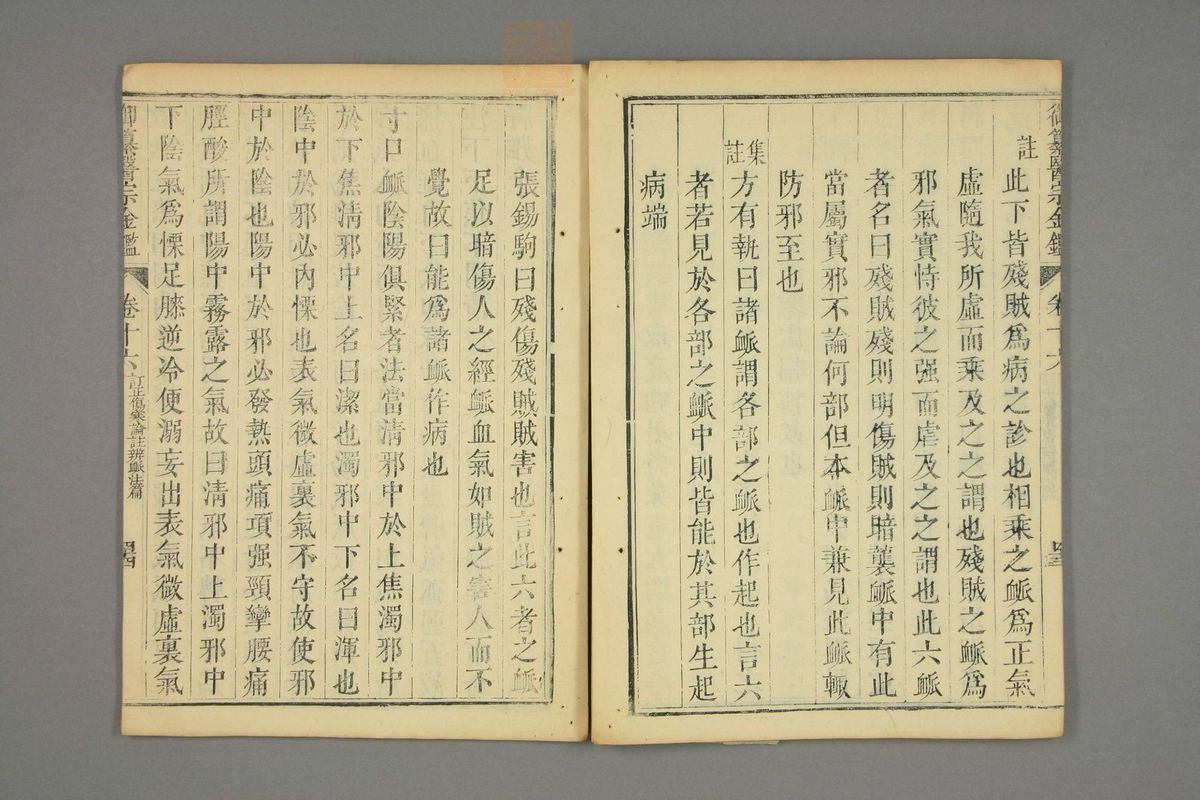 御纂醫宗金鑑 卷十六
註
此下皆殘賊爲病之診也相乘之衇爲正氣
虛隨我所虛而乘及之之謂也殘賊之衇爲
邪氣實恃彼之强而虐及之之謂也此六衇
者名曰殘賊殘則明傷賊則暗襲衇中有此
當屬實邪不論何部但本衇中兼見此衇輒
防邪至也
集註
方有執曰諸衇謂各部之衇也作起也言六
者若見於各部之衇中則皆能於其部生起
病端
張錫駒曰殘傷殘賊賊害也言此六者之衇
足以暗傷人之經衇血氣如賊之害人而不
覺故曰能爲諸衇作病也
寸口衇陰陽俱緊者法當清邪中於上焦濁邪中
於下焦清邪中上名曰潔也濁邪中下名曰渾也
陰中於邪必內慄也表氣微虛裏氣不守故使邪
中於陰也陽中於邪必發熱頭痛項强頸攣腰痛
脛酸所謂陽中霧露之氣故曰清邪中上濁邪中
下陰氣爲慄足膝逆冷便溺妄出表氣微虛裏氣
御纂醫宗金鑑 卷十六 訂正傷寒論註辨衇法篇